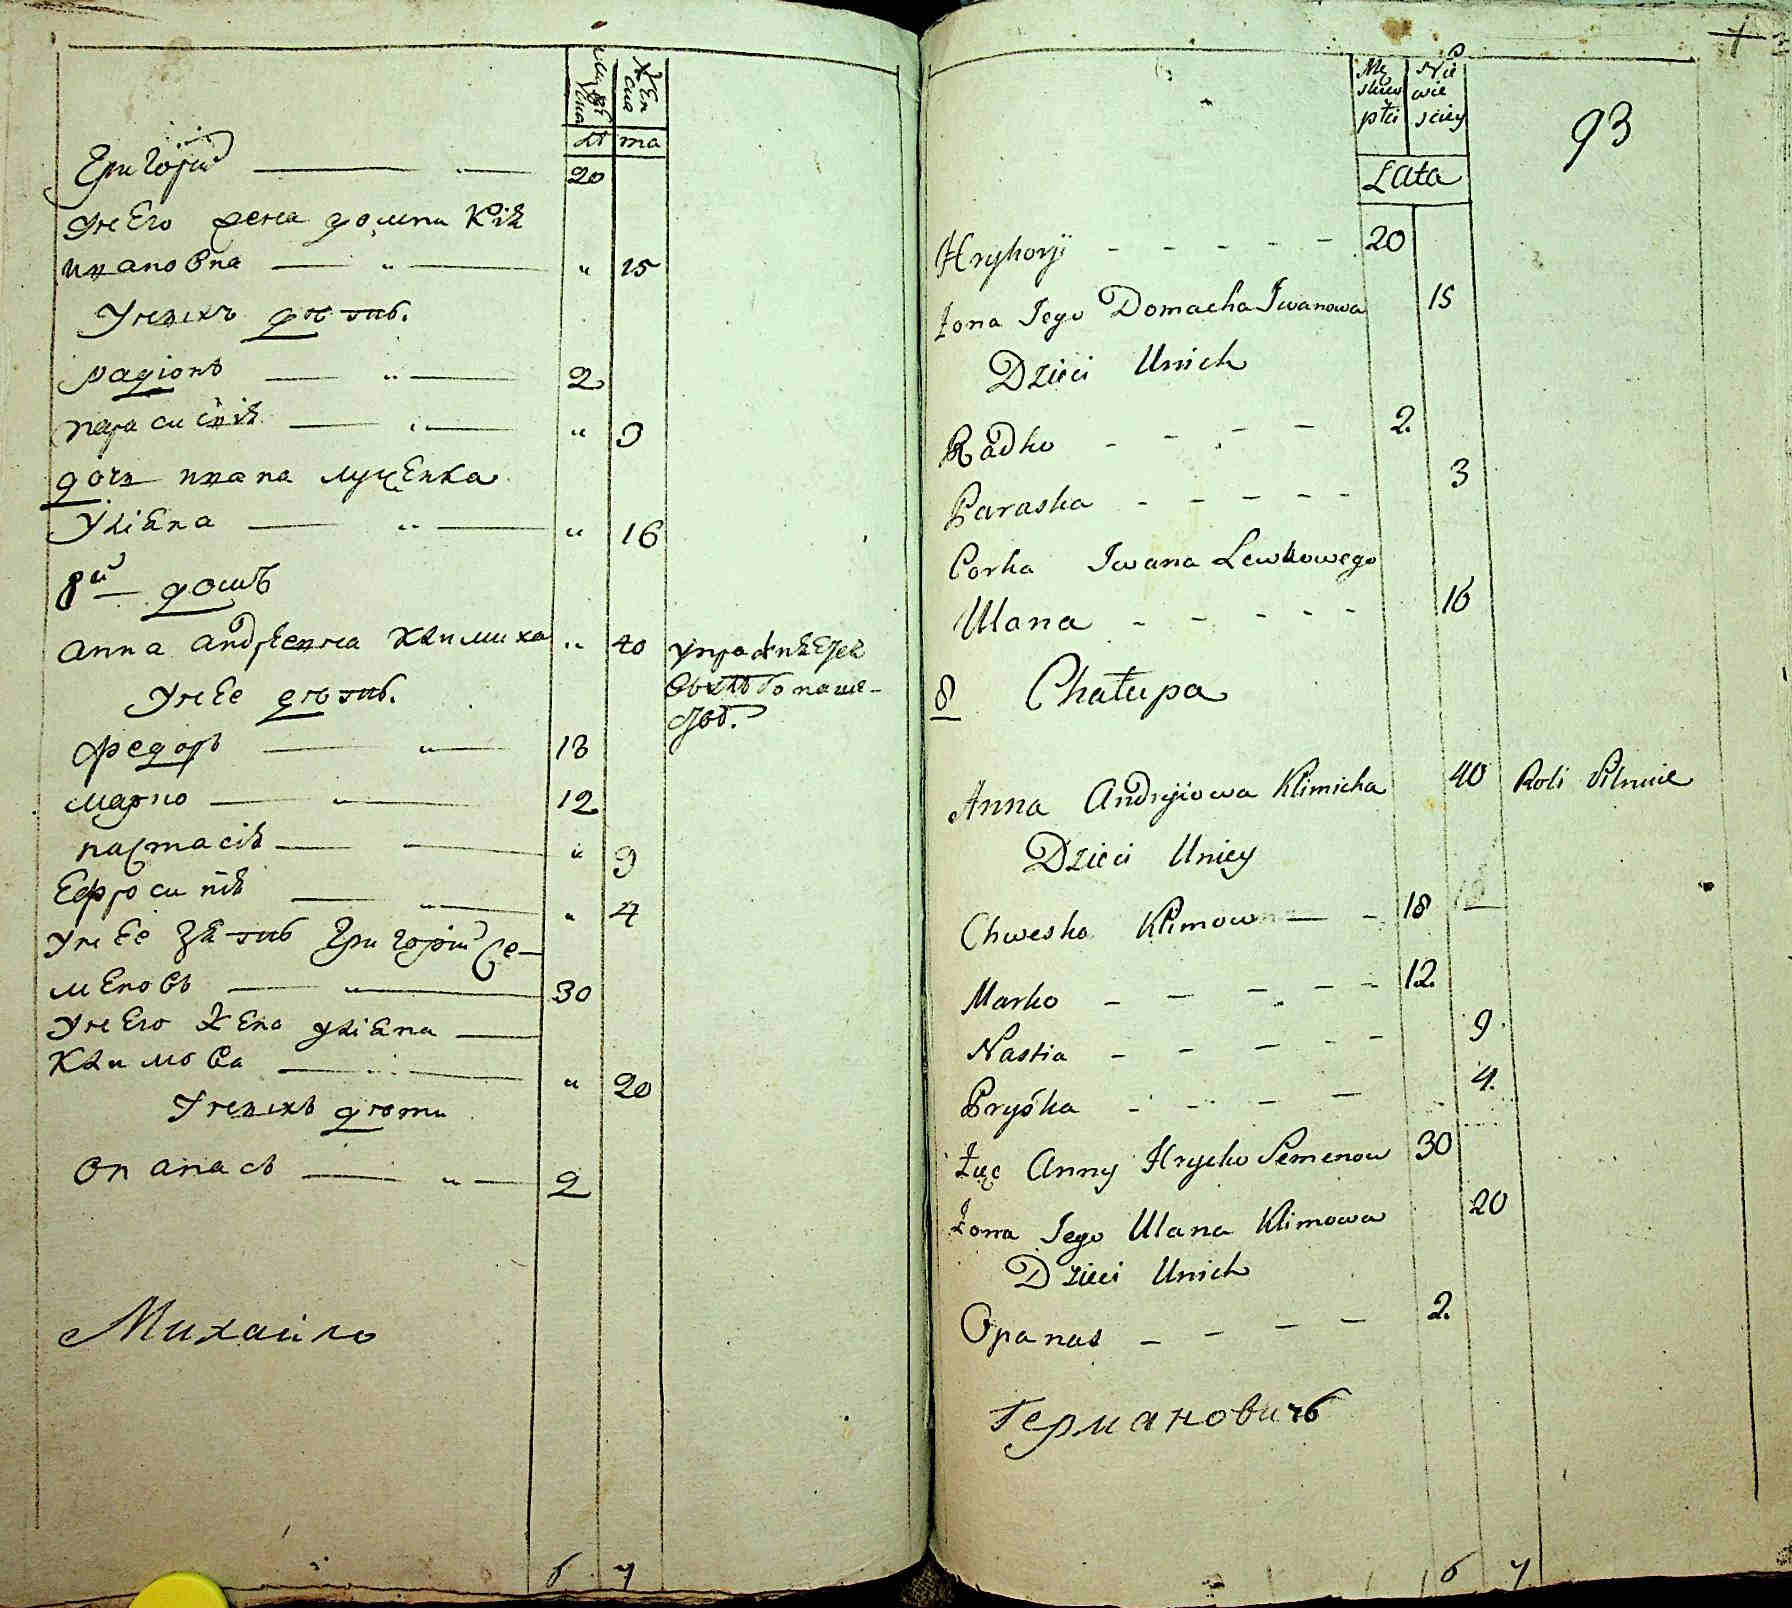 Мужеска
Женска
лѣта
Григорій 20
У него жена Домникія
Ивановна " 15
У нихъ дѣти.
Радіонъ 2
Параскивія " 3
дочь Ивана Луценка
Уліяна " 16
8й домъ
Анна Андрѣевна Климиха " 40
У нее дѣти.
Федоръ 18
Марко 12
Настасія " 9
Ефросинія " 4
У нее зять Григорій Се-
меновъ 30
У него жена Уліяна
Климова " 20
У нихъ дѣти
Опанасъ 2
Михайло
6 7
Męskiey płci
Niewieściey
Lata
93
Hryhoryi 20
Żona Jego Domacha Iwanowa 15
Dzieci Unich
Radko 2.
Paraska 3
Corka Iwana Lewkowego
Ulana 16
8 Chałupa
Anna Andryiowa Klimicha 40 Roli Pilnuie
Dzieci Uniey
Chwesko Klimow 18
Marko 12.
Nastia 9.
Pryśka 4.
Zięć Anny Hrycko Semenow 30
Żona Jego Ulana Klimowa 20
Dzieci Unich
Opanas 2.
Германовичъ
6 7